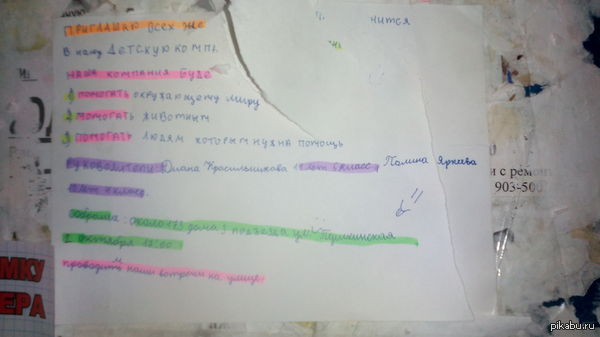 ПРИГЛАШАЮ ВСЕХ ЖЕ нится
В нашу ДЕТСКУЮ КОМПА
НАША КОМПАНИЯ БУДЕ
1 ПОМОГАТЬ ОКРУЖАЮЩЕМУ МИРУ
2 ПОМОГАТЬ ЖИВОТНЫМ
3 ПОМОГАТЬ ЛЮДЯМ КОТОРЫМ НУЖНА ПОМОЩЬ
РУКОВОДИТЕЛИ: Диана Красильникова класс, Полина
лет класс.
около 173 дома 3 подъезда ул Пушкинская
октября 17:00
проводить наши встречи на улице
и с ремо
903-50
МКУ
ЕРА
pikabu.ru